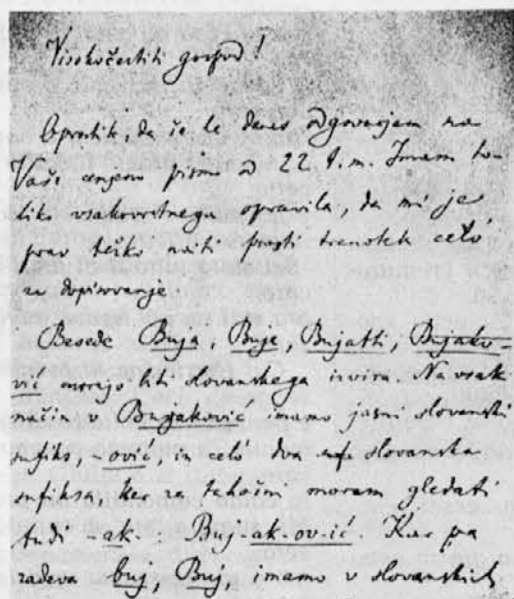 Visokočestiti gospod!
Oprostite, da še le danes odgovarjam na
Vaše cenjeno pismo od 22. t. m. Imam to-
liko vsakovrstnega opravila, da mi je
prav težko najti prosti trenotek celo
za dopisovanje.
Besede Buja, Buje, Bujatti, Bujako-
vić morejo biti slovanskega izvira. Na vsak
način v Bujaković imamo jasni slovanski
sufiks, -ović, in celó dva slovanska
sufiksa, ker za takošin moram gledati
tudi -ak-: Buj-ak-ov-ić. Kar pa
zadeva buj, Buj, imamo v slovanskih